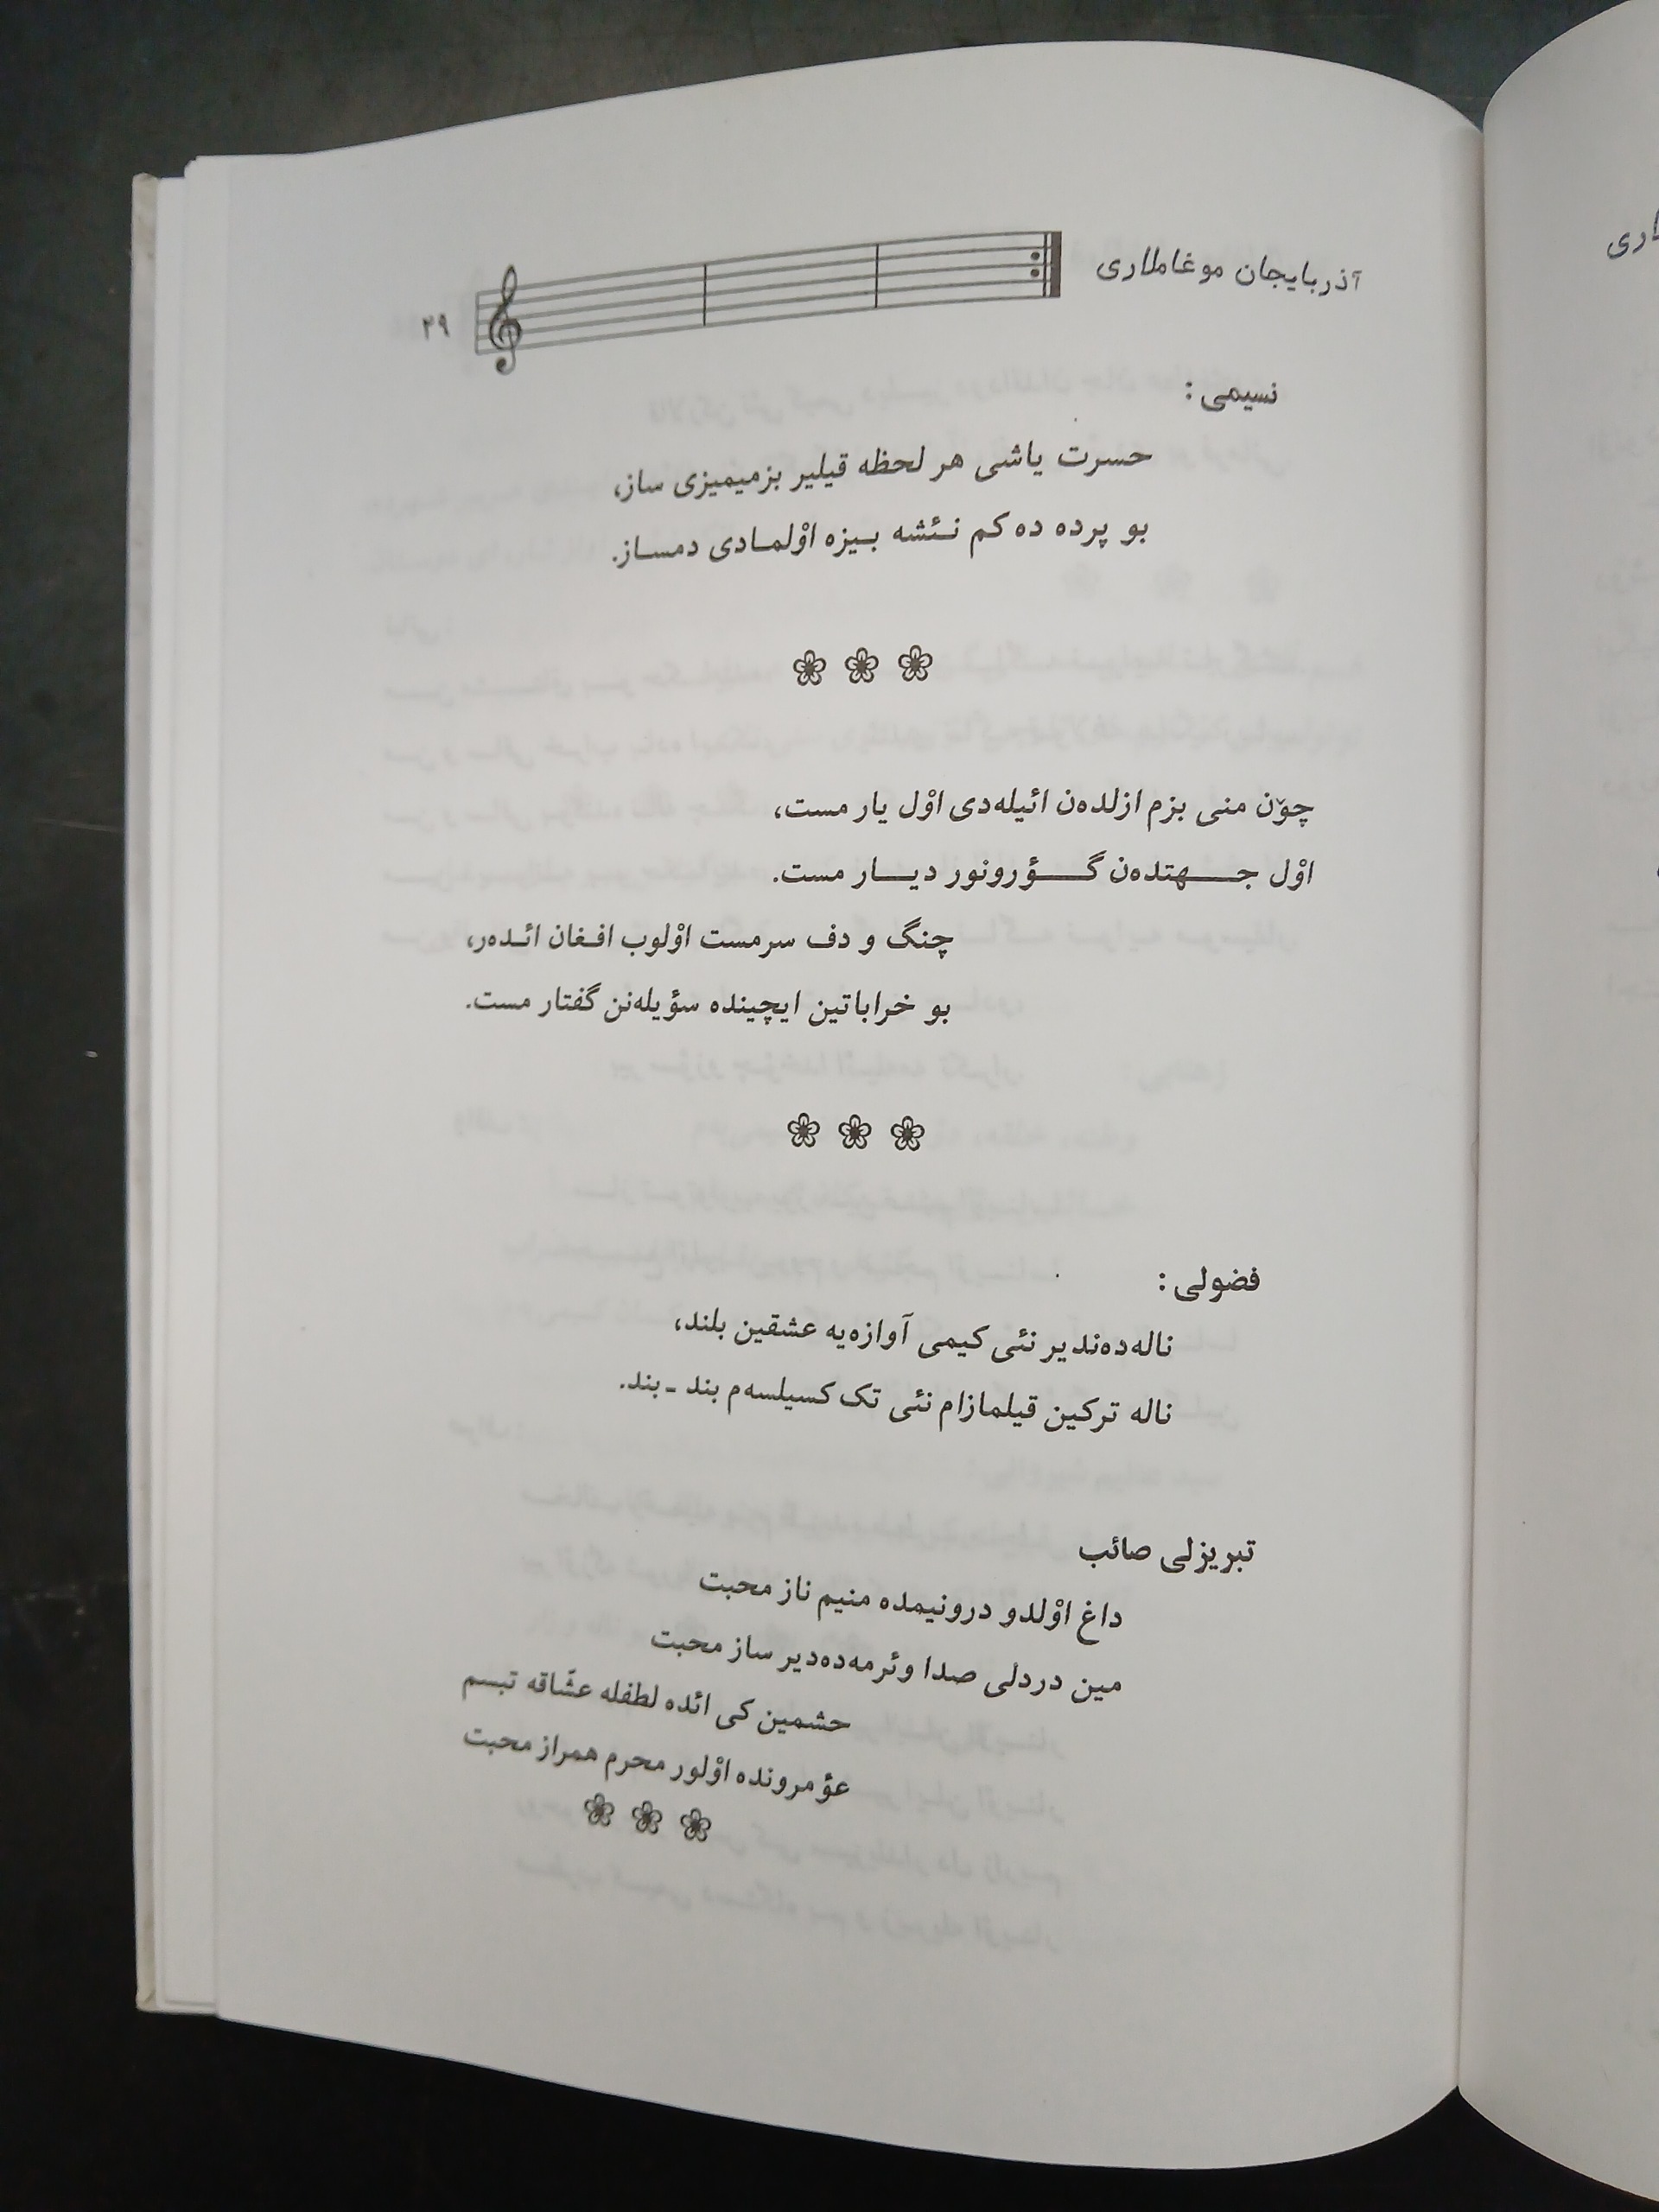 آذربایجان موغاملاری
۲۹
نسیمی :
حسرت یاشی هر لحظه قیلیر بزمیمیزی ساز،
بو پرده ده کم نئشه بیزه اوْلمادی دمساز.
چوْن منی بزم ازلده‌ن ائیله‌دی اوْل یار مست،
اوْل جهتده‌ن گؤرونور دیار مست.
چنگ و دف سرمست اوْلوب افغان ائده‌ر،
بو خراباتین ایچینده سؤیله‌نن گفتار مست.
فضولی :
ناله‌ده‌ندیر نئی کیمی آوازه‌یه عشقین بلند،
ناله ترکین قیلمازام نئی تک کسیلسه‌م بند ـ بند.
تبریزلی صائب
داغ اوْلدو درونیمده منیم ناز محبت
مین دردلی صدا وئرمه‌ده‌دیر ساز محبت
حشمین کی ائده لطفله عشّاقه تبسم
عؤمرونده اوْلور محرم همراز محبت
لاری